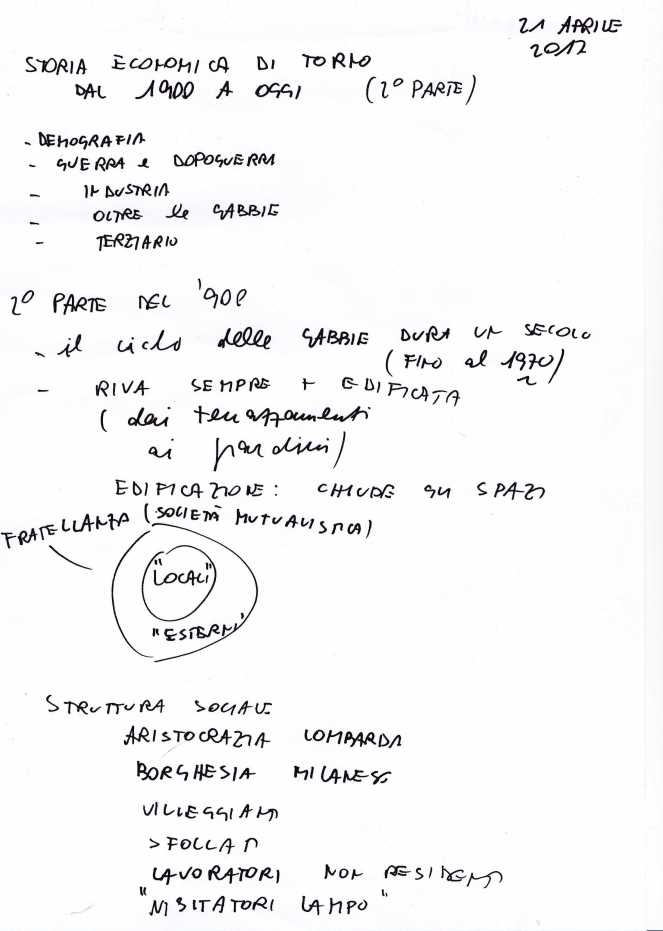 21 APRILE
2012
STORIA ECONOMICA DI TORNO
DAL 1900 A OGGI (2° PARTE)
- DEMOGRAFIA
- GUERRA e DOPOGUERRA
- INDUSTRIA
- OLTRE le GABBIE
- TERZIARIO
2° PARTE DEL '900
- il ciclo delle GABBIE DURA UN SECOLO
(FINO al 1970)
- RIVA SEMPRE + EDIFICATA
(dai terrazzamenti
ai giardini)
EDIFICAZIONE: CHIUDE GLI SPAZI
FRATELLANZA (SOCIETÀ MUTUALISTICA)
"LOCALI"
"ESTERNI"
STRUTTURA SOCIALE
ARISTOCRAZIA LOMBARDA
BORGHESIA MILANESE
VILLEGGIANTI
SFOLLATI
LAVORATORI NON RESIDENTI
"VISITATORI LAMPO"